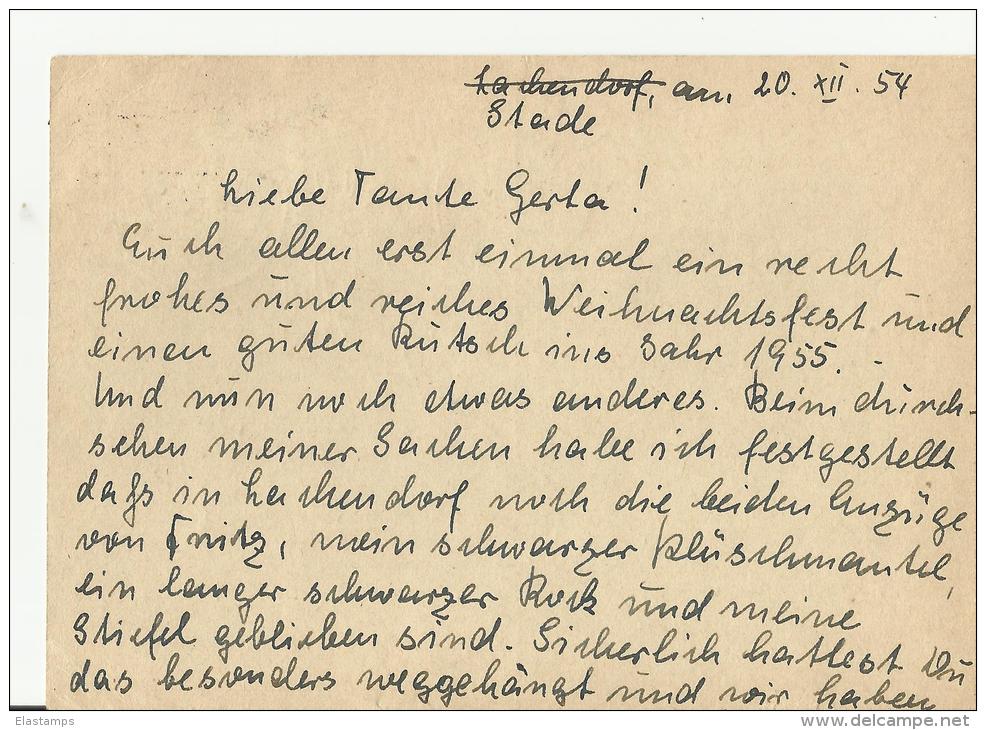 Lachendorf, am 20. XII. 54
Stade
Liebe Tante Gerta!
Euch allen erst einmal ein recht
frohes und reiches Weihnachtsfest und
einen guten Rutsch ins Jahr 1955. -
Und nun noch etwas anderes. Beim durch-
sehen meiner Sachen habe ich festgestellt
daß in Lachendorf noch die beiden Anzüge
von Fritz, mein schwarzer Plüschmantel,
ein langer schwarzer Rock und meine
Stiefel geblieben sind. Sicherlich hattest Du
das besonders weggehängt und wir haben
Elastamps
www.delcampe.net